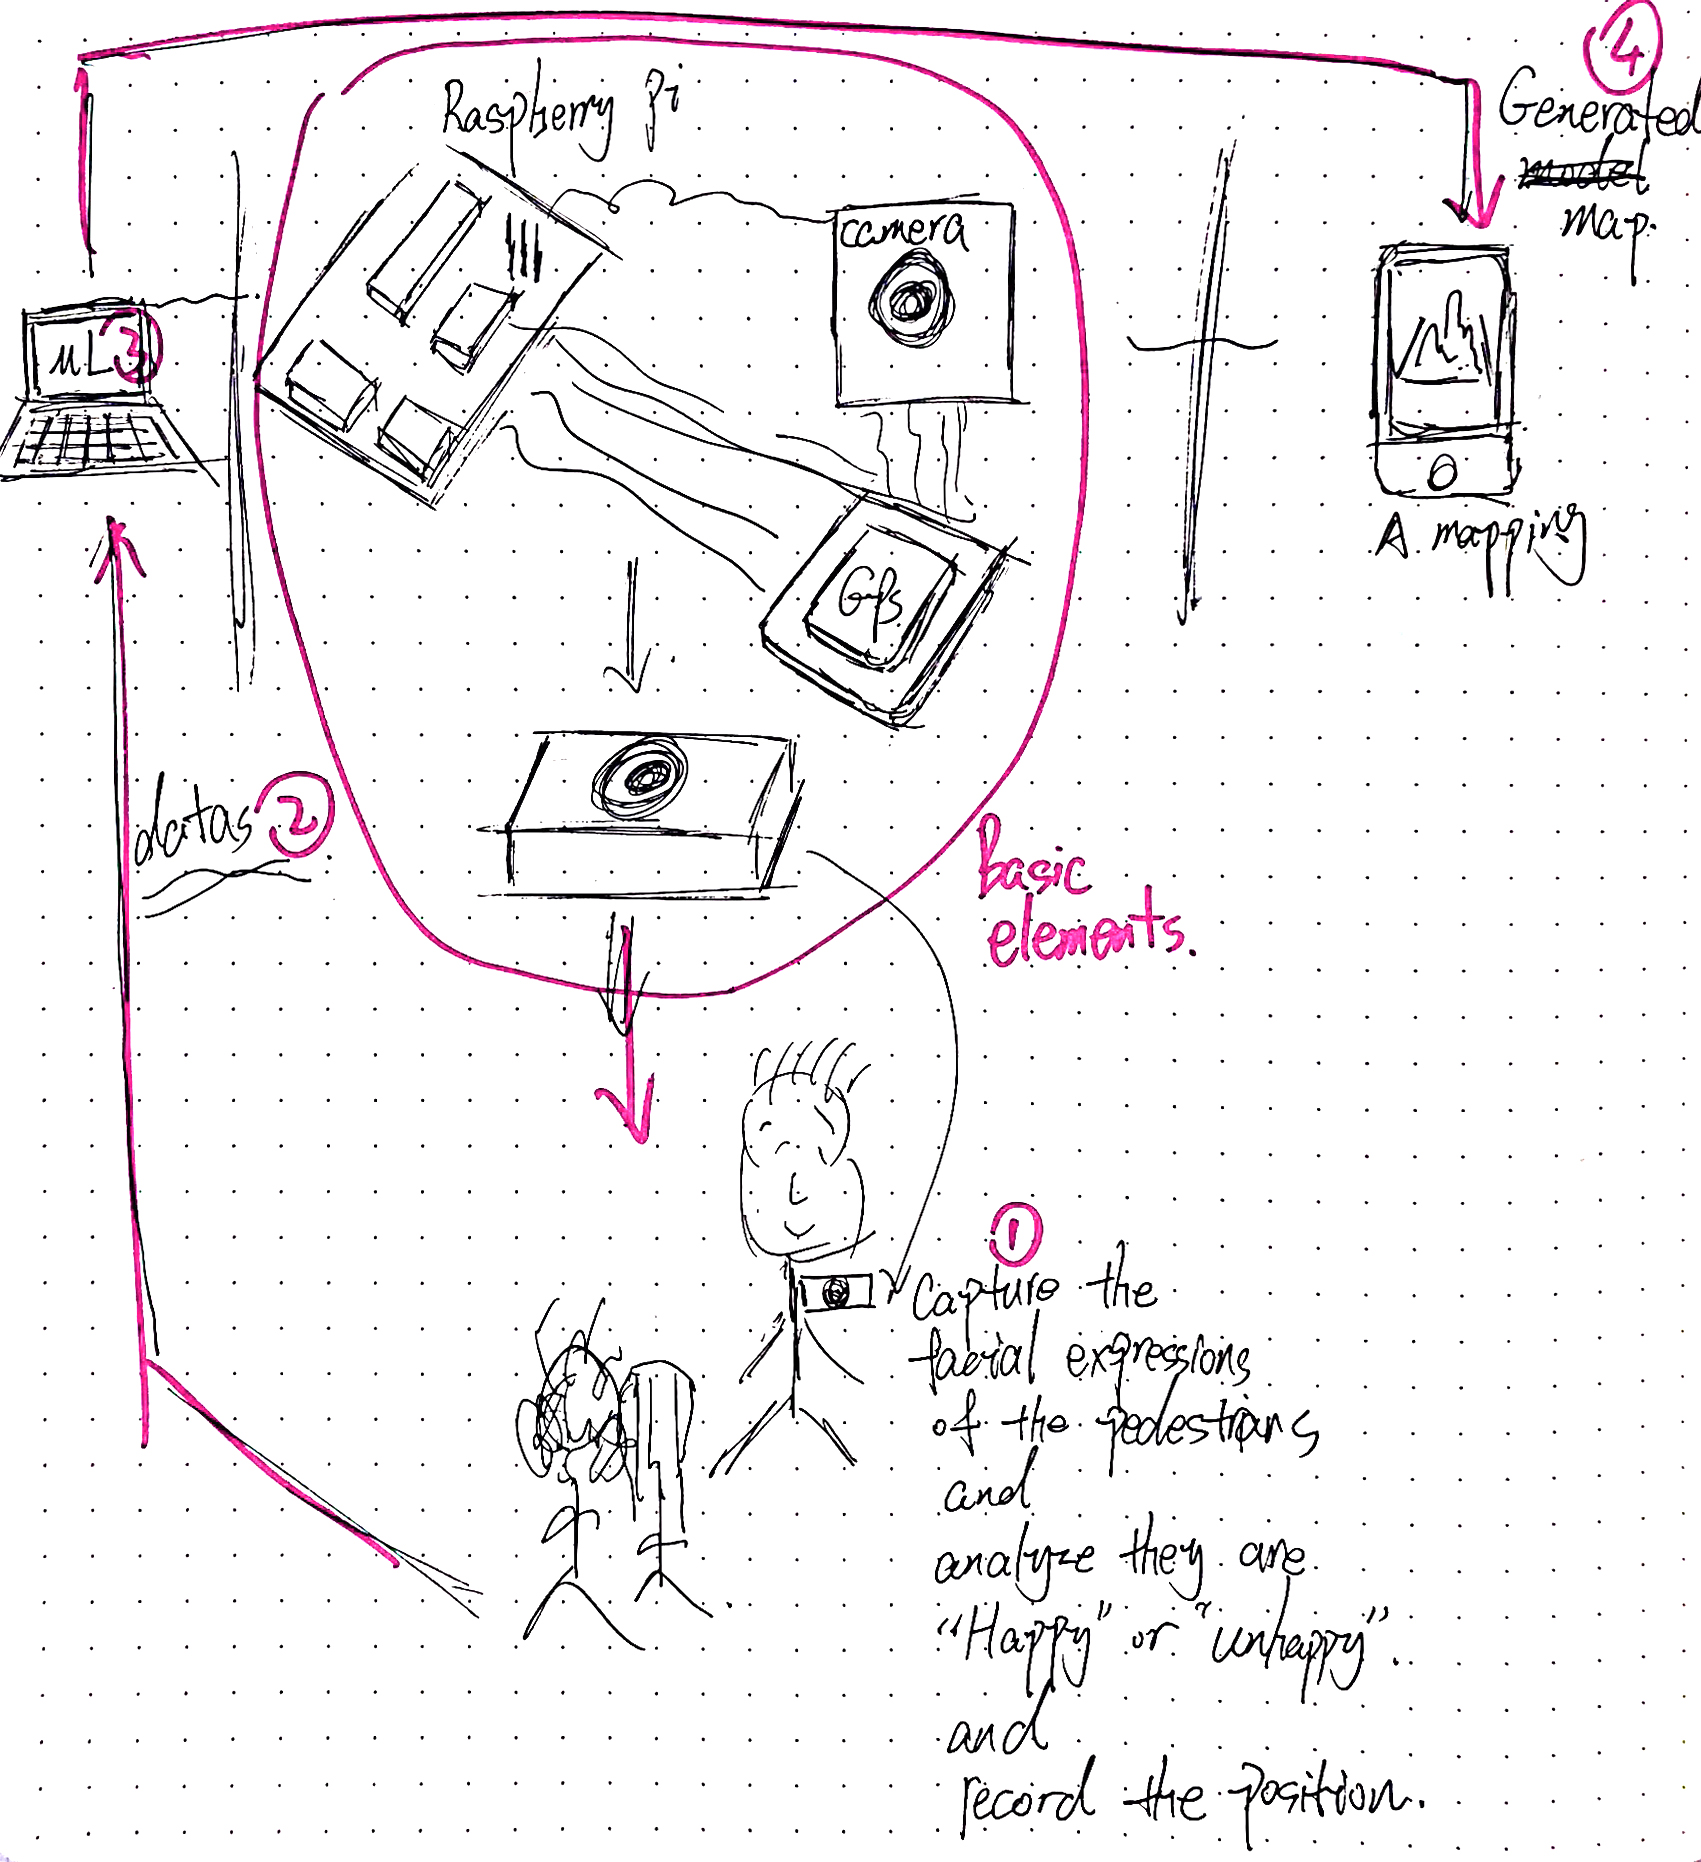 4
Raspberry Pi
Generated
model
map.
camera
ML
3
A mapping
GPs
datas
2
Basic
elements.
1
Capture the
facial expressions
of the pedestrians
and
analyze they are
"Happy" or "unhappy".
and
record the position.